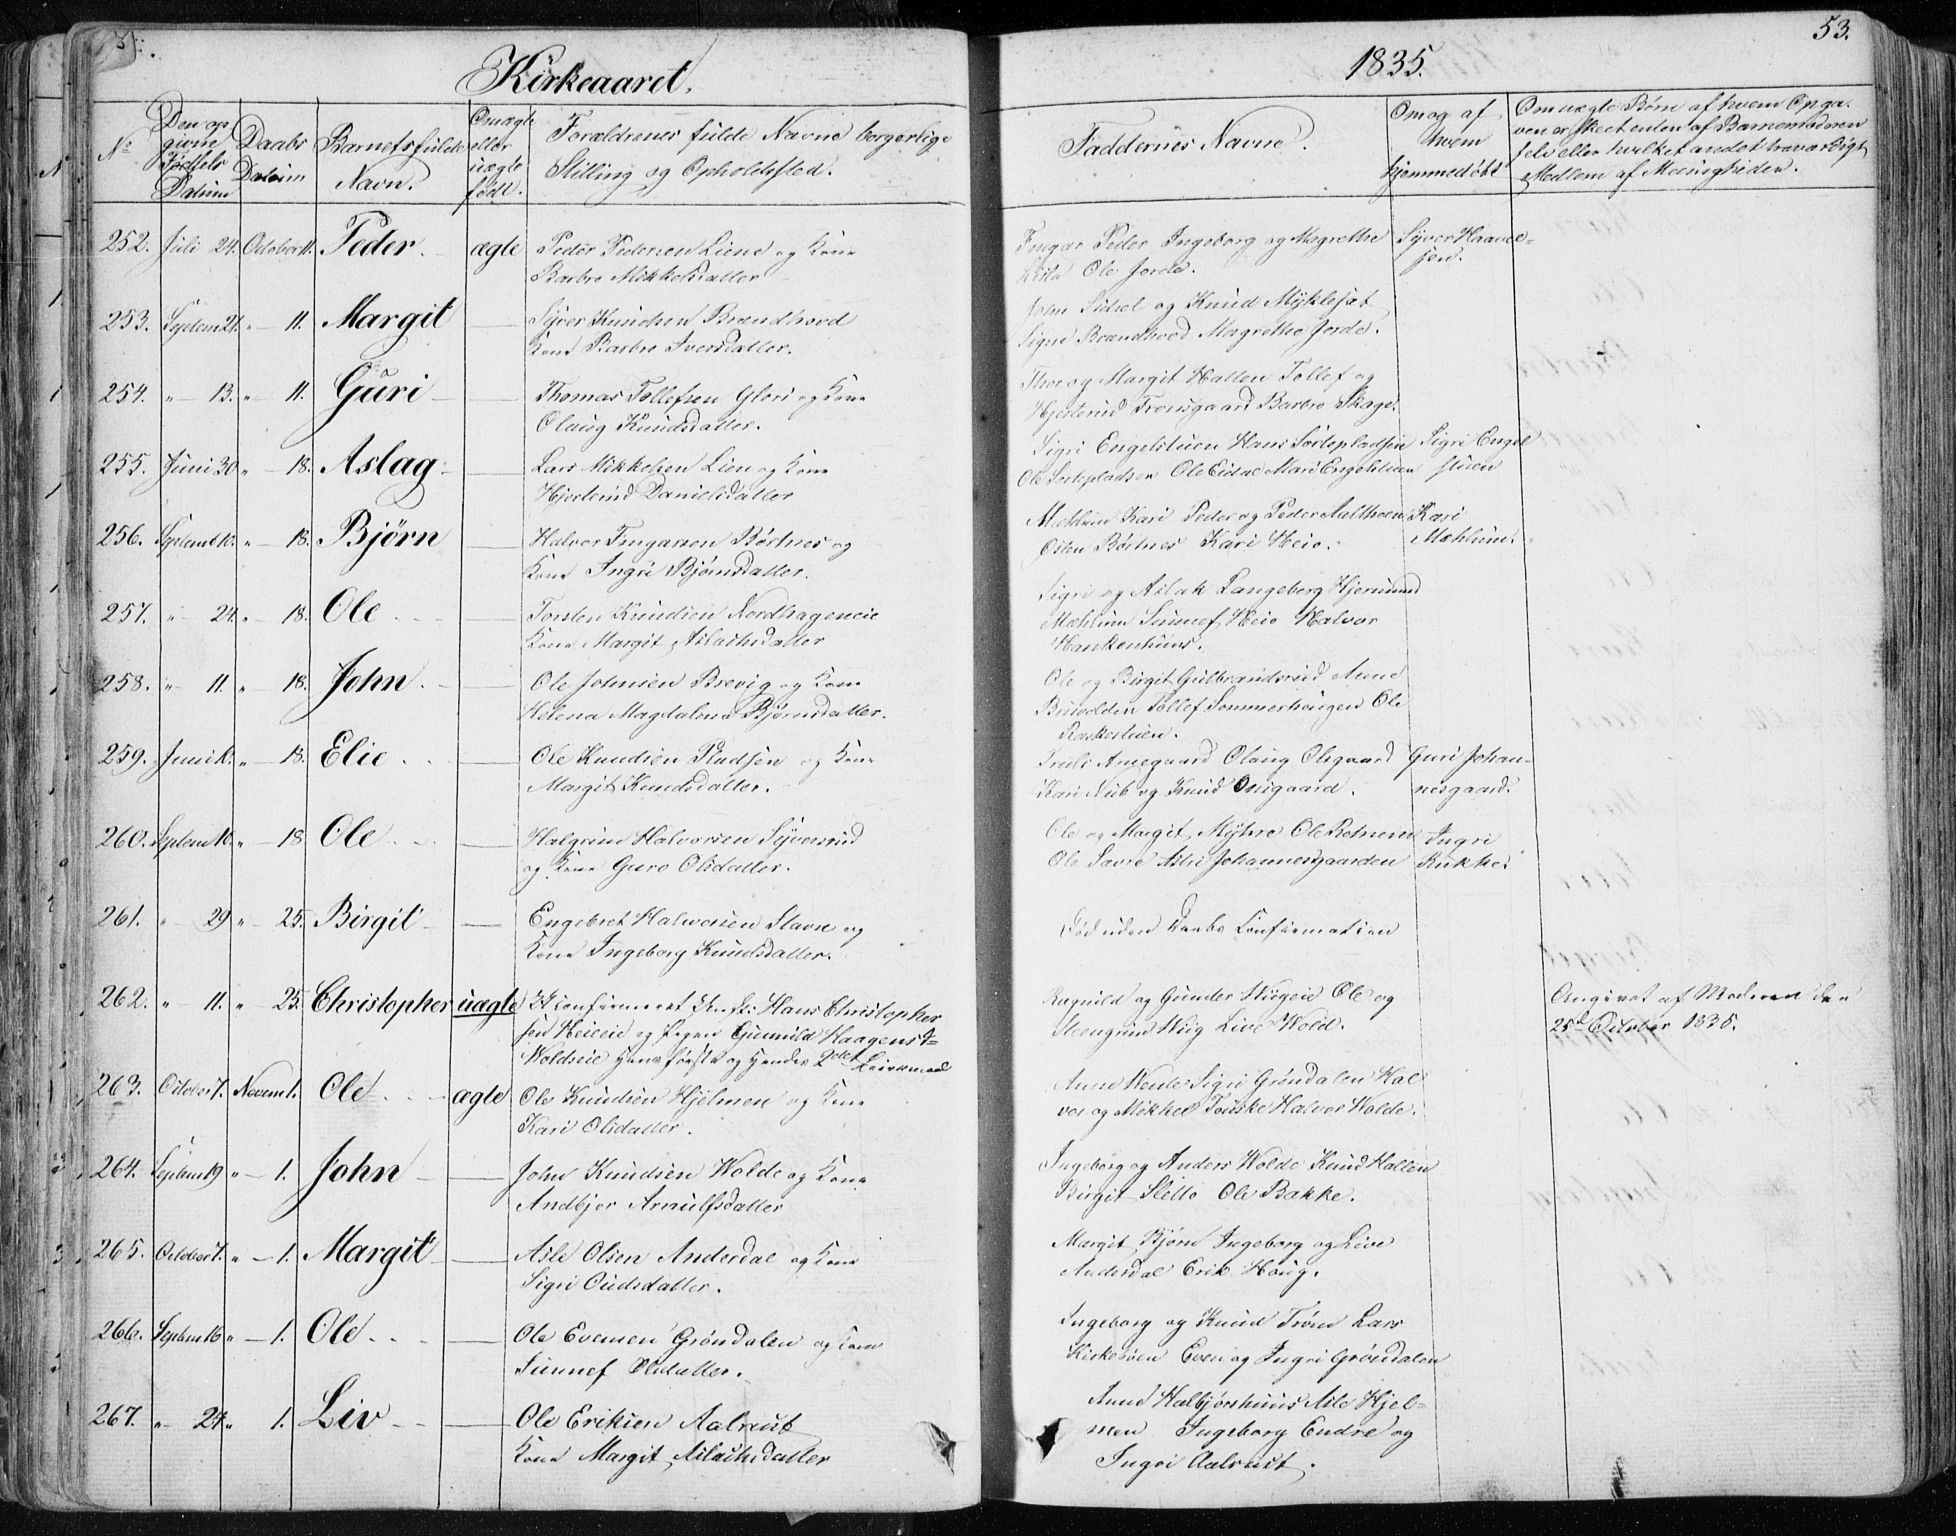 Kirkeaaret.
1835.
53.
No
Den op
givne
Fødsels
Datum
Daabs
Datum
Barnets fulde
Navn.
Om ægte
eller
uægte
født.
Forældrenes fulde Navne borgerlige
Stilling og Opholdssted.
Faddernes Navne.
Om og af
hvem
hjemmedøbt
Om uægte Børn af hvem Opga-
ven er skeet enten af Barnemoderen
selv eller hvilket andet troværdigt
Medlem af Menigheden.
252. Juli 24. October 11. Peder. ægte Peder Pedersen Liene og Kone
Barbro Mikkelsdatter
Fingar Peder Ingeborg og Magrethe
Ole Jorde.
Syver Haavel-
sen.
253. Septem 21. " 11. Margit Syver Knudsen Brændhovd
Kone Barbro Iversdatter.
John Sidsel og Knud Myklesæt
Signe Brændhovd Magrethe Jorde.
254. " 13. " 11. Guri Thomas Tollefsen Gleri og Kone
Olaug Knudsdatter.
Thor og Margit Hallen Tollef og
Hjertrud Tronsgaard Barbro Skage.
255. Juni 30 " 18. Aslag. Lars Mikkelsen Lien og Kone
Hjertrud Danielsdatter
Sigri Engelstuen Hans Sortepladsen
Ole Sortepladsen Ole Eidal Mari Engelstuen
Sigri Engel
stuen
256. Septemb 10. " 18. Bjørn Halvor Fingarsen Børtnes og
Kone Ingri Bjørnsdatter.
Mæhlum Kari Peder og Peder Aalthoen
Østen Børtnes Kari Heie.
Kari
Mæhlum.
257. " 24. " 18. Ole Torsten Knudsen Nordhageneie
Kone Margit Aslachsdatter
Sigri og Aslak Langeberg Hjermund
Mæhlum Sunnef Heie Halvor
Hankenhuus.
258. " 11. " 18. John. Ole Johnsen Brevig og Kone
Helena Magdalena Bjørnsdatter.
Ole og Birgit Gulbrandsrud Anne
Bruodden Tollef Sommerhaugen Ole
Roskestuen.
259. Juni " 18. Elie Ole Knudsen Pladsen og Kone
Margit Knudsdatter.
Truls Arnegaard Olaug Olsgaard
Kari Nub og Knud Onsgaard.
Guri Johan-
nesgaard.
260. Septem 10. " 18 Ole Halgrim Halvorsen Syversrud
og Kone Guro Olsdatter.
Ole og Margit Myhre Ole Rotneim
Ole Sævre Astri Johannesgaarden
Ingri
Rukke.
261. " 29 " 25. Birgit Engebret Halvorsen Slavne og
Kone Ingeborg Knudsdatter.
Død uden Daabs Confirmation
262. " 11. " 25. Christopher uægte Confirmeret Hans Christopher
sen Heieeie og Pigen Gunnild Haagensd=
Woldseie hans første og hendes 2det Leiermaal
Ragnild og Gunder Ole og
Steengrim Wiig Live Wold.
Angivet af Moderen den
25de October 1835.
263. October 7. Novem 1. Ole ægte Ole Knudsen Hjelmen og Kone
Kari Olsdatter.
Anne Wende Sigri Grøndalen Hal
vor og Mikkel Tønske Halvor Wolde.
264. Septem 19 " 1. John John Knudsen Wolde og Kone
Andbjør Arnulfsdatter
Ingeborg og Anders Wolde Knud Hallen
Birgit Sletto Ole Bakke.
265. October 7. " 1. Margit Asle Olsen Anderdal og Kone
Sigri Oudsdatter.
Margit Bjørn Ingeborg og Live
Anderdal Erik Houg.
266. Septem 16 " 1. Ole Ole Evensen Grøndalen og Kone
Sunnef Olsdatter.
Ingeborg og Knud Trøm Lars
Kirkebøen Even og Ingri Grøndalen
267. " 27. " 1. Liv Ole Eriksen Aalrust
Kone Margit Aslachsdatter
Anne Halbjørhuus Asle Hjel-
men Ingeborg Endre og
Ingri Aalrust.